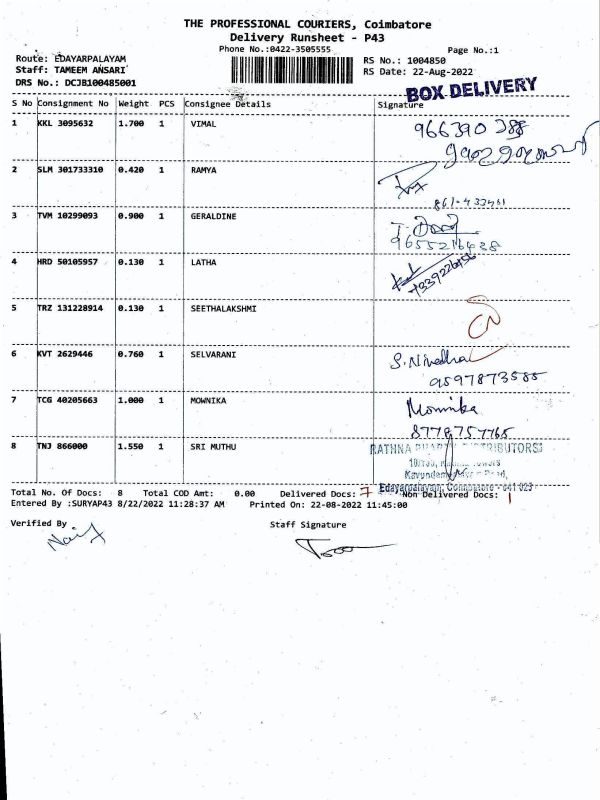 THE PROFESSIONAL COURIERS, Coimbatore
Delivery Runsheet - P43
Phone No.:0422-3505555
Page No.:1
Route: EDAYARPALAYAM
Staff: TAMEEM ANSARI
DRS No.: DCJB100485001
RS No.: 1004850
RS Date: 22-Aug-2022
BOX DELIVERY
S No Consignment No Weight PCS Consignee Details Signature
1 KKL 3095632 1.700 1 VIMAL
2 SLM 301733310 0.420 1 RAMYA
3 TVM 10299093 0.900 1 GERALDINE
9655216438
4 HRD 50105957 0.130 1 LATHA
5 TRZ 131228914 0.130 1 SEETHALAKSHMI
6 KVT 2629446 0.760 1 SELVARANI
S. Nivedha
9597873585
7 TCG 40205663 1.000 1 MOWNIKA
Mownika
8778757765
8 TNJ 866000 1.550 1 SRI MUTHU
RATHNA
Edayarpalayam, Coimbatore - 641 025
Total No. Of Docs: 8 Total COD Amt: 0.00 Delivered Docs: 7 Non Delivered Docs: 1
Entered By :SURYAP43 8/22/2022 11:28:37 AM Printed On: 22-08-2022 11:45:00
Verified By
Staff Signature